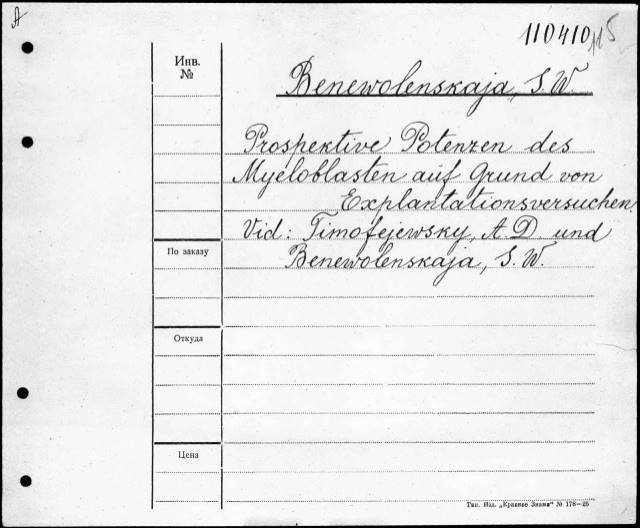 A
110410,115
Инв.
№
Benewolenskaja, S. W.
Prospektive Potenzen des
Myeloblasten auf Grund von
Explantationsversuchen
Vid: Timofejewsky, A. D. und
Benewolenskaja, S. W.
По заказу
Откуда
Цена
Тип. Изд. „Красное Знамя“ № 178—26